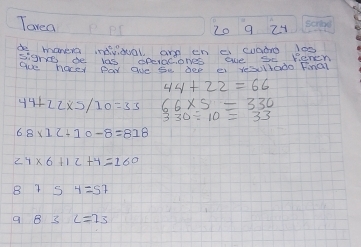 Tarea 20 9 24
de manera individual anp en el cuadro los
signos de las operaciones que se tienen
que hacer Par que se dee el resultado Final
44+22=66
44+22x5/10=33 66x5=330
330÷10=33
68x12+10-8=818
24x6+12+4=160
8 7 5 4=57
9 8 3 2=73